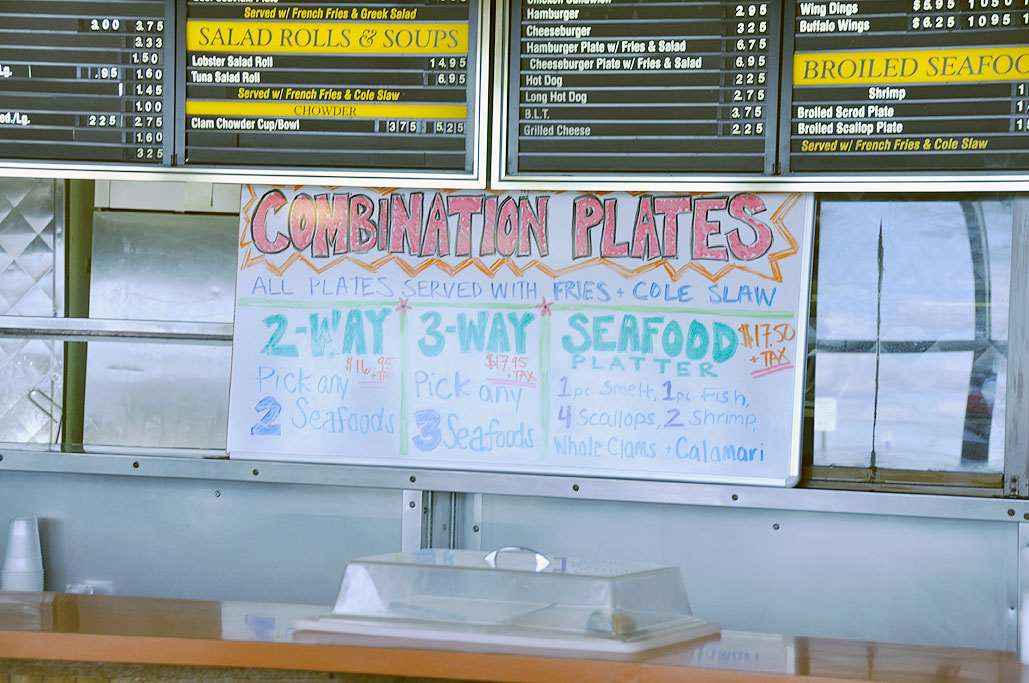 3.00 3.75
3.33
1.50
Lg. .95 1.60
1.45
1.00
ed./Lg. 2.25 2.75
1.60
3.25
Served w/ French Fries & Greek Salad
SALAD ROLLS & SOUPS
Lobster Salad Roll 14.95
Tuna Salad Roll 6.95
Served w/ French Fries & Cole Slaw
CHOWDER
Clam Chowder Cup/Bowl 3.75 5.25
Hamburger 2.95
Cheeseburger 3.25
Hamburger Plate w/ Fries & Salad 6.75
Cheeseburger Plate w/ Fries & Salad 6.95
Hot Dog 2.25
Long Hot Dog 2.75
B.L.T. 3.75
Grilled Cheese 2.25
Wing Dings $5.95 10.50
Buffalo Wings $6.25 10.95
BROILED SEAFOO
Shrimp 1
Broiled Scrod Plate 1
Broiled Scallop Plate 1
Served w/ French Fries & Cole Slaw
COMBINATION PLATES
ALL PLATES SERVED WITH FRIES + COLE SLAW
2-WAY
$16.95
+ TAX
Pick any
2 Seafoods
3-WAY
$17.95
+ TAX
Pick any
3 Seafoods
SEAFOOD
PLATTER
$17.50
+ TAX
1pc. Smelt, 1pc. Fish,
4 Scallops, 2 Shrimp,
Whole Clams + Calamari